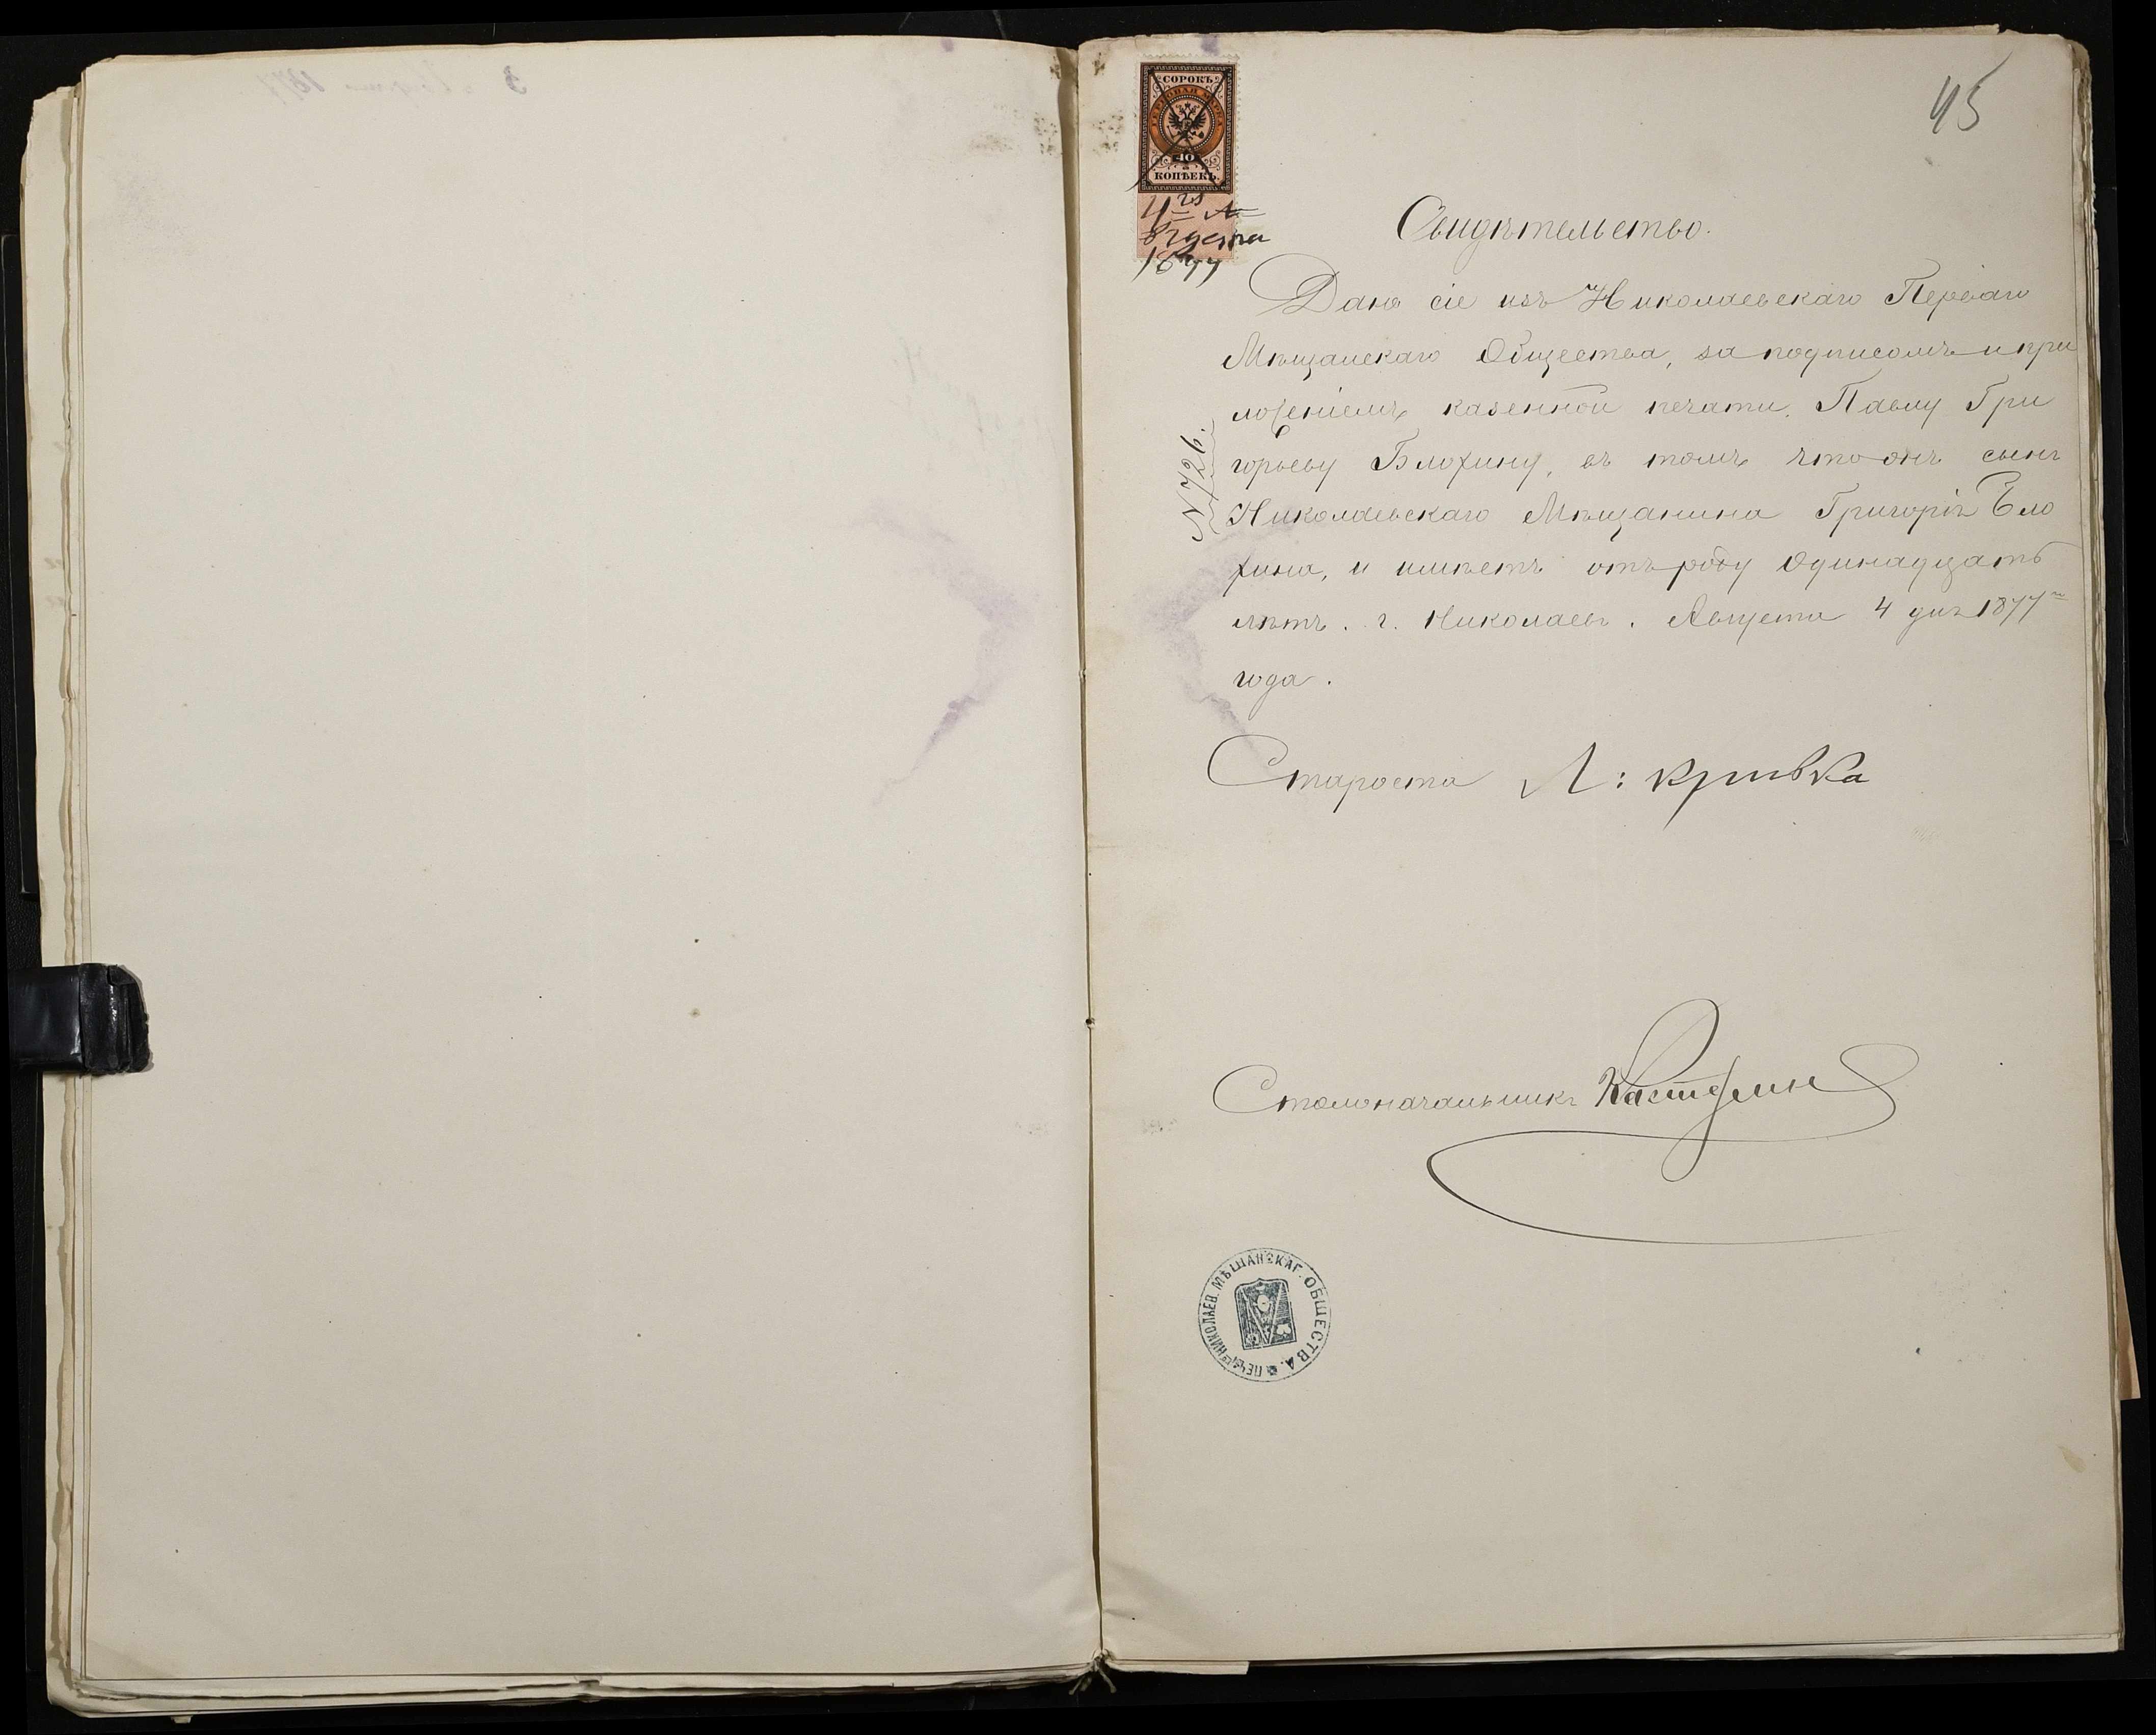 45
СОРОКЪ
ГЕРБОВАЯ МАРКА
40
КОПѢЕКЪ.
4го А
вгуста
1877
Свидѣтельство.
Дано сіе изъ Николаевскаго Перваго
Мѣщанскаго Общества, за подписомъ и при
ложеніемъ казенной печати, Павлу Гри
горьеву Блохину, въ томъ что онъ сынъ
Николаевскаго Мѣщанина Григорія Бло
хина, и имѣетъ отъ роду Одинадцать
лѣтъ. г. Николаевъ. Августа 4 дня 1877го
года.
N 726.
Староста Л: Кривка
Столоначальникъ
ПЕЧАТЬ НИКОЛАЕВ. МѢЩАНСКАГ. ОБЩЕСТВА.